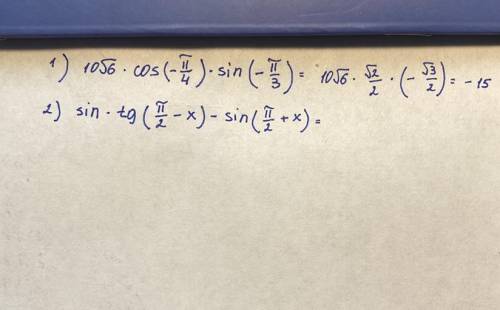 1) 10√6 · cos(-π/4) · sin(-π/3) = 10√6 · √2/2 · (-√3/2) = -15
2) sin · tg(π/2 - x) - sin(π/2 + x) =